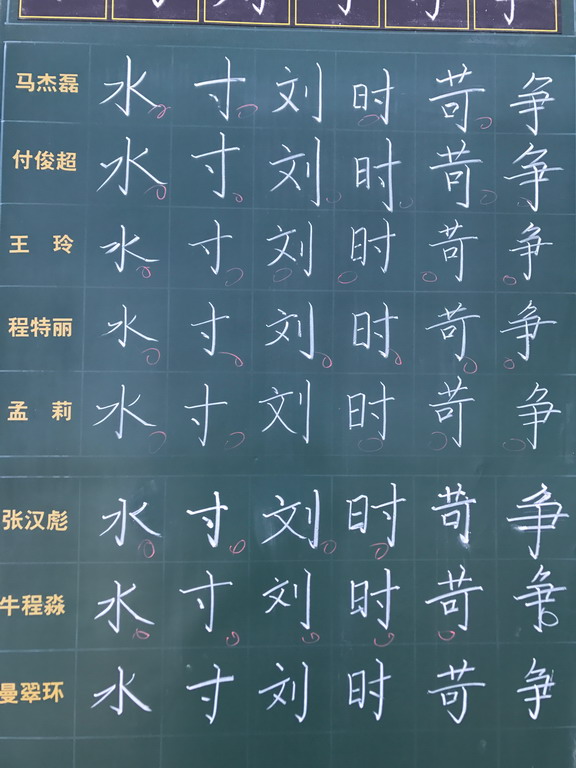 马杰磊 水 寸 刘 时 苛 争
付俊超 水 寸 刘 时 苛 争
王 玲 水 寸 刘 时 苛 争
程特丽 水 寸 刘 时 苛 争
孟 莉 水 寸 刘 时 苛 争
张汉彪 水 寸 刘 时 苛 争
牛程淼 水 寸 刘 时 苛 争
曼翠环 水 寸 刘 时 苛 争